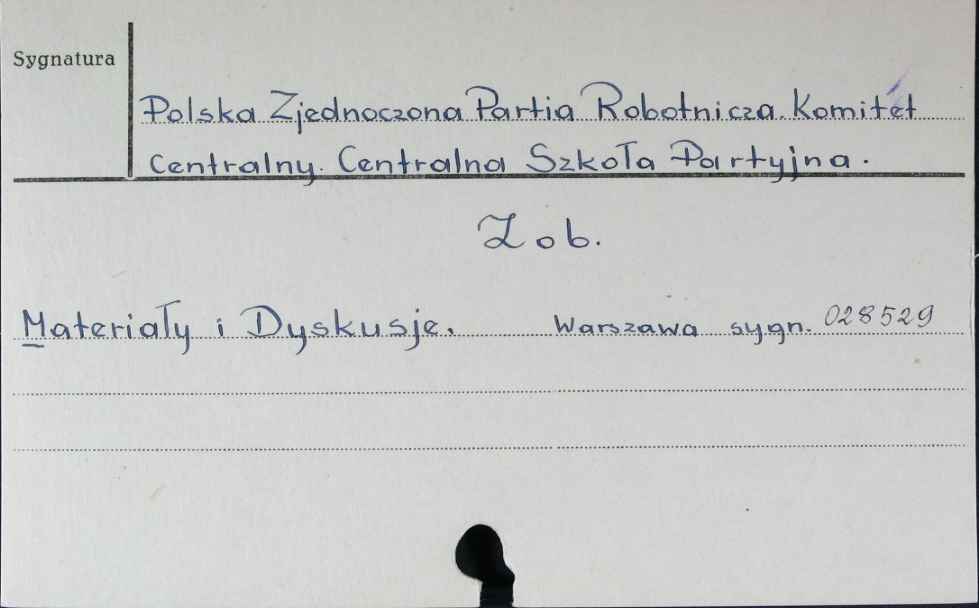 Sygnatura
Polska Zjednoczona Partia Robotnicza. Komitet
Centralny. Centralna Szkoła Partyjna.
Zob.
Materiały i Dyskusje. Warszawa sygn. 028529